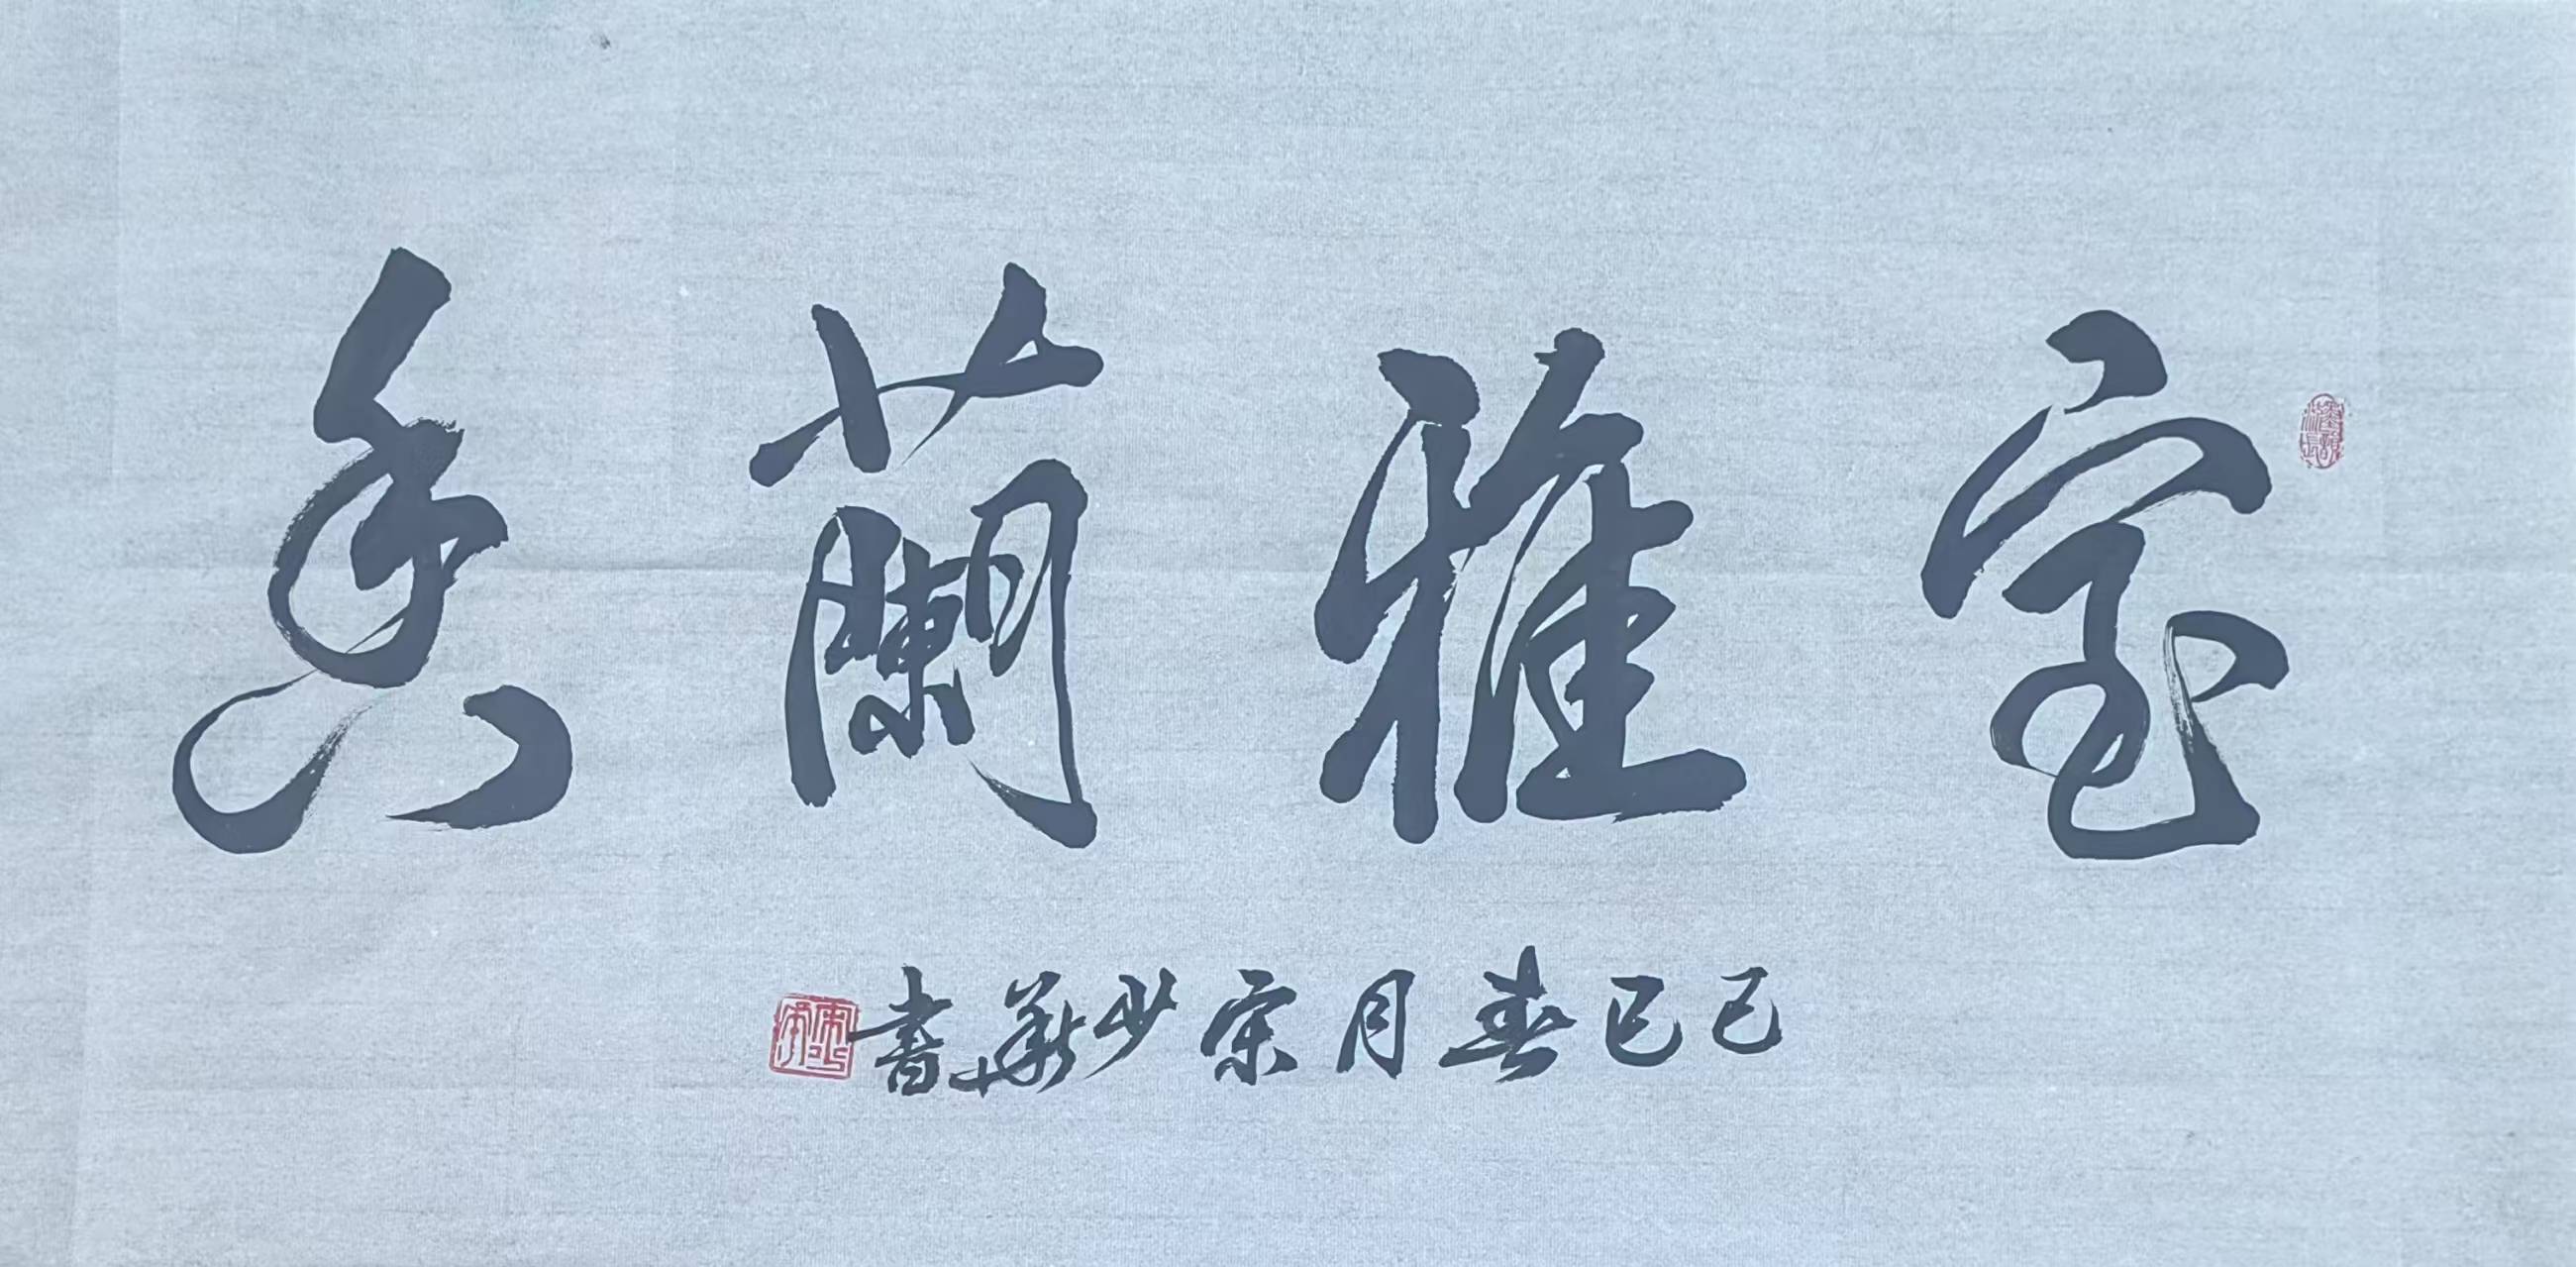 室雅蘭香
己巳春月宋少華書